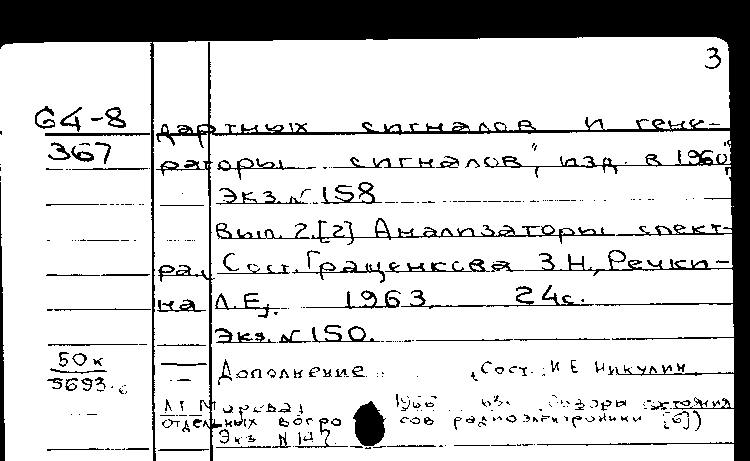 3
64-8 дартных сигналов и гене-
367 раторы сигналов", изд. в 1960
Экз. № 158
Вып. 2.[2] Анализаторы спект-
ра. Сост. Граценкова З.Н., Речки-
на Л.Е., 1963. 24с.
Экз. № 150.
50к Дополнение. (Сост. И Е Никулин
5693
1966 63с.
отдельных вопро сов радиоэлектроники [6])
Экз N 147